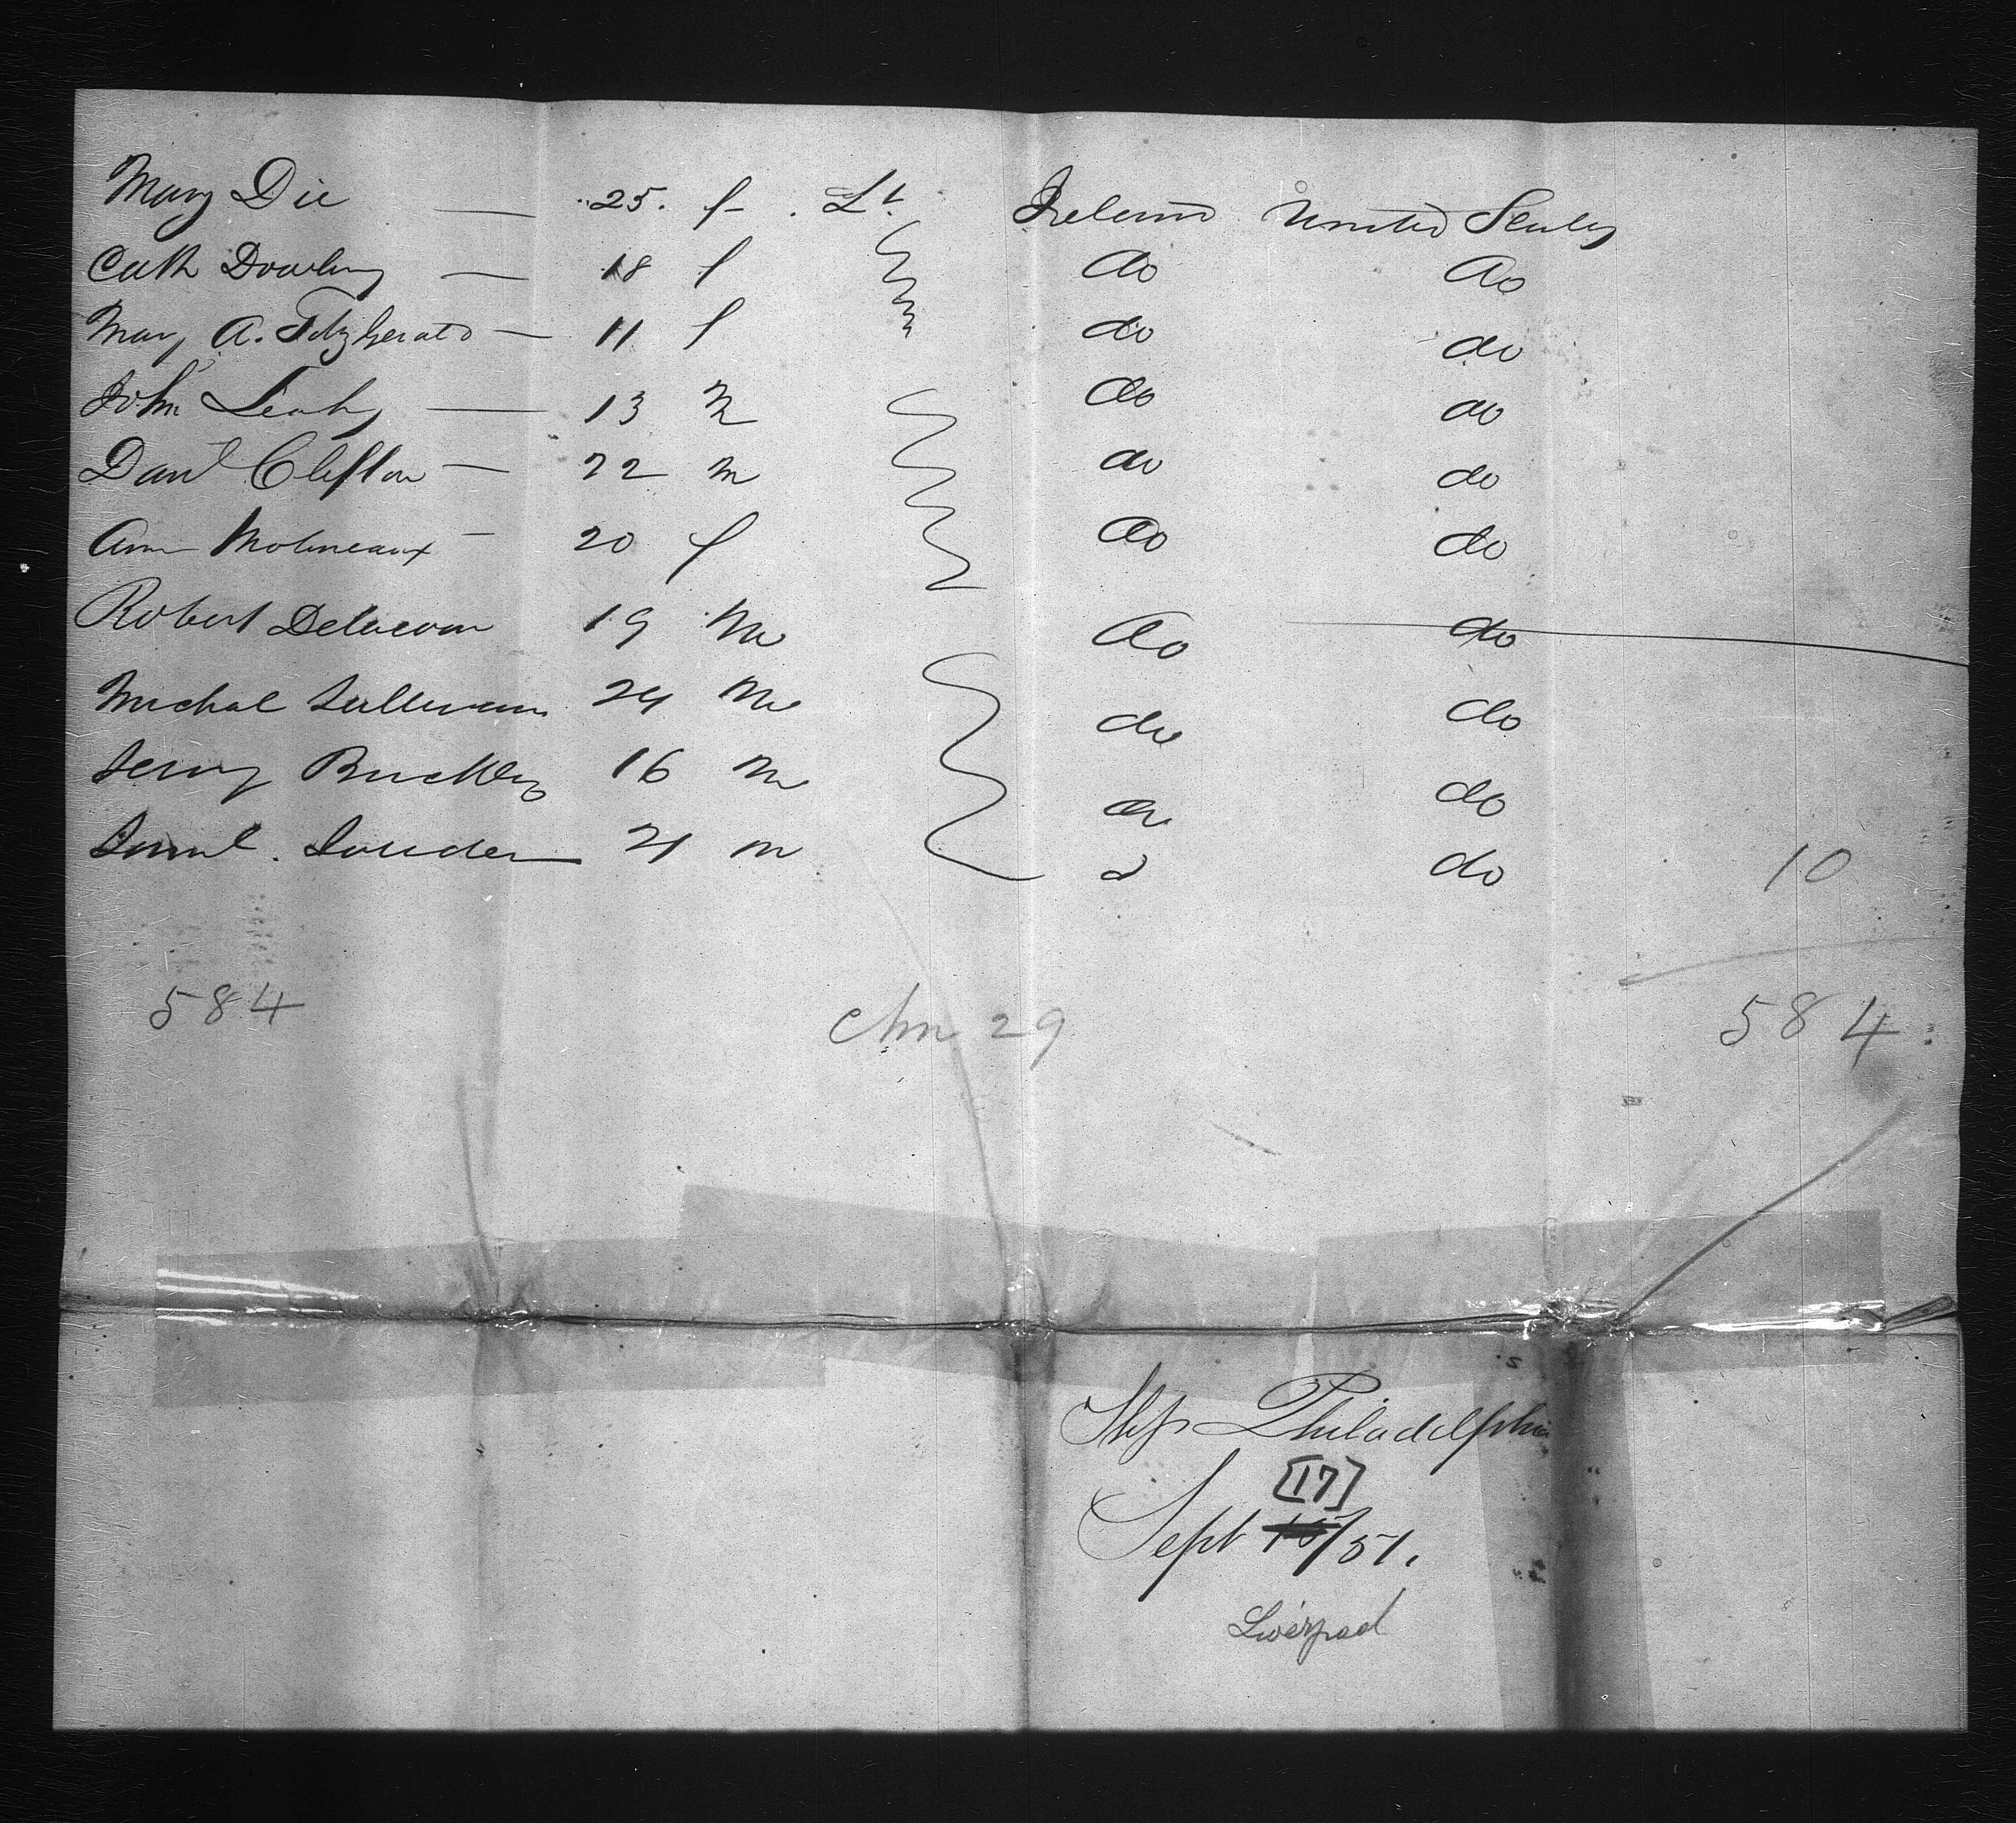 Mary Die — 25. f. Lr. Ireland United States
Cath Dowling — 18 f do do
Mary A. Fitzgerald — 11 f do do
John Leahy — 13 M do do
Danl Clifton — 22 m do do
Ann Molineaux — 20 f do do
Robert Delacour 19 M do do
Michal Sullivan 24 M do do
Jerry Buckley 16 m do do
Saml. Souden 21 m d do
10
584 Am 29 584
Ship Philadelphia
[17]
Sept 15/51.
Liverpool